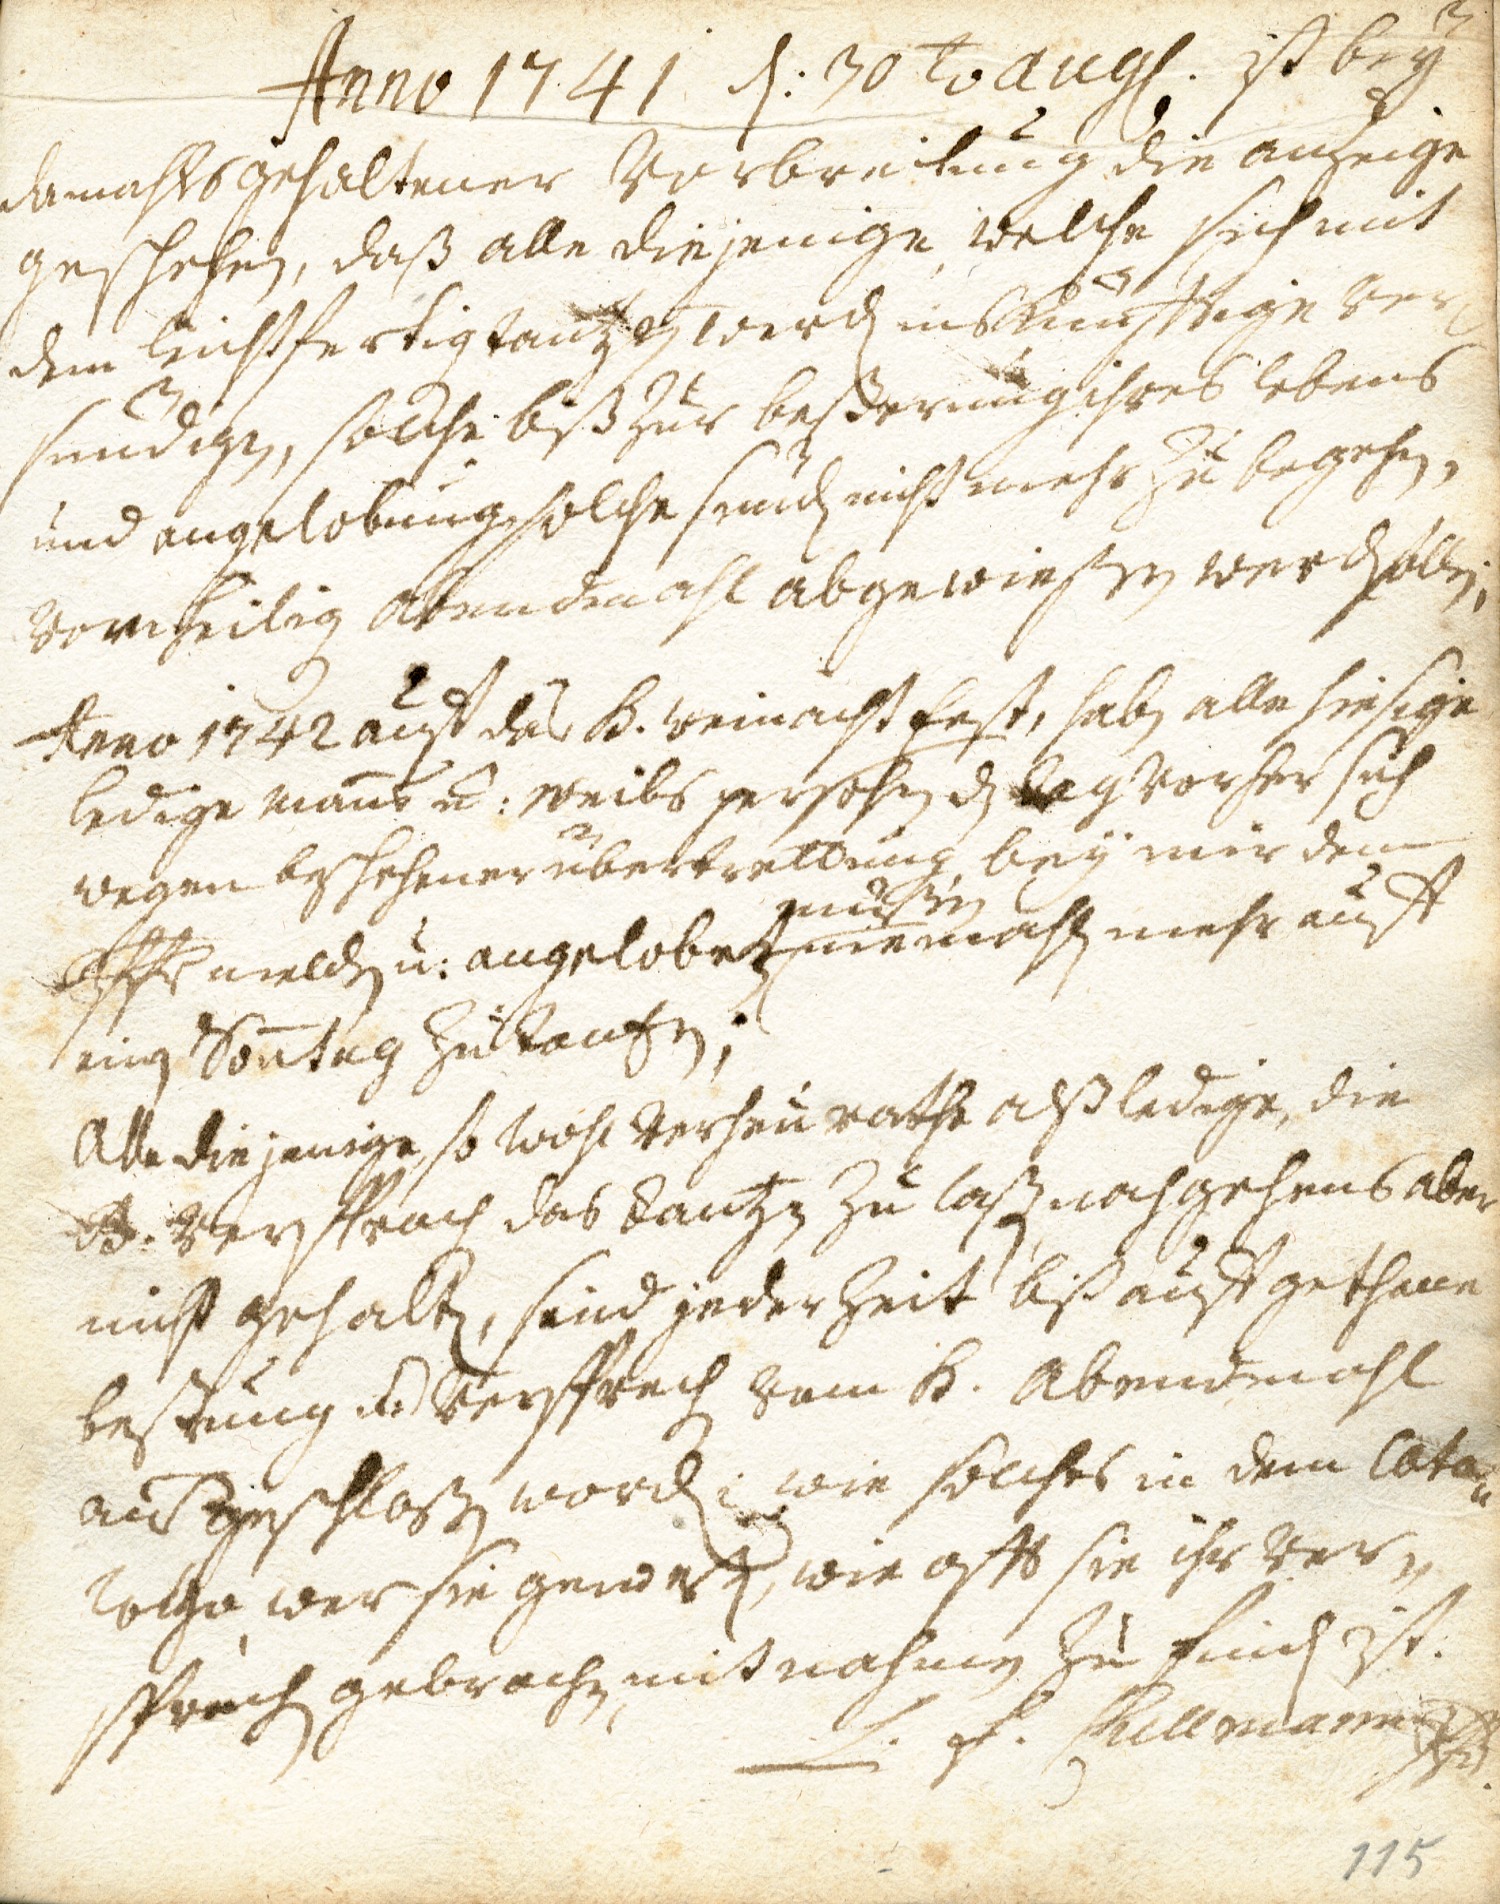 Anno 1741 d: 30 to Aug. ist bey
damahls gehaltener Vorbereitung die anzeige
geschehen, daß alle diejenige, welche sich mit
dem leichtfertig tantzen werden inskünfftige ver¬
sündigen, solche biß zur beßerung ihres lebens
und angelobung solche sünd nicht mehr zu begehen,
vom heilig Abendmahl abgewiesen werd sollen;
Anno 1742 auff das H. weinacht fest, haben alle hiesige
ledige manns u: weibs persohnen d tag vorher sich
wegen beschehener übertrettung, bey mir dem
melden u: angeloben müßen niemahls mehr auff
ein Sontag zu tantzen;
Alle diejenige, so wohl verheurathe alß ledige, die
versproch das Tantzen zu laßen nachgehens aber
nicht gehalten, sind jederzeit biß auff gethane
beßrung u versprech vom H. Abendmahl
außgeschloßen worden; wie solches in dem Cata¬
logo, wer sie gewest, wie offt sie ihr ver¬
sprech gebrochen, mit nahmen zu find ist.
L. f. Cullmann
115